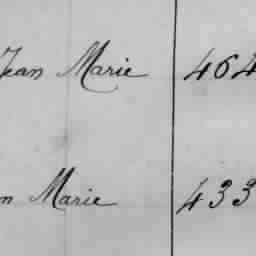 Jean Marie 464
n Marie 433